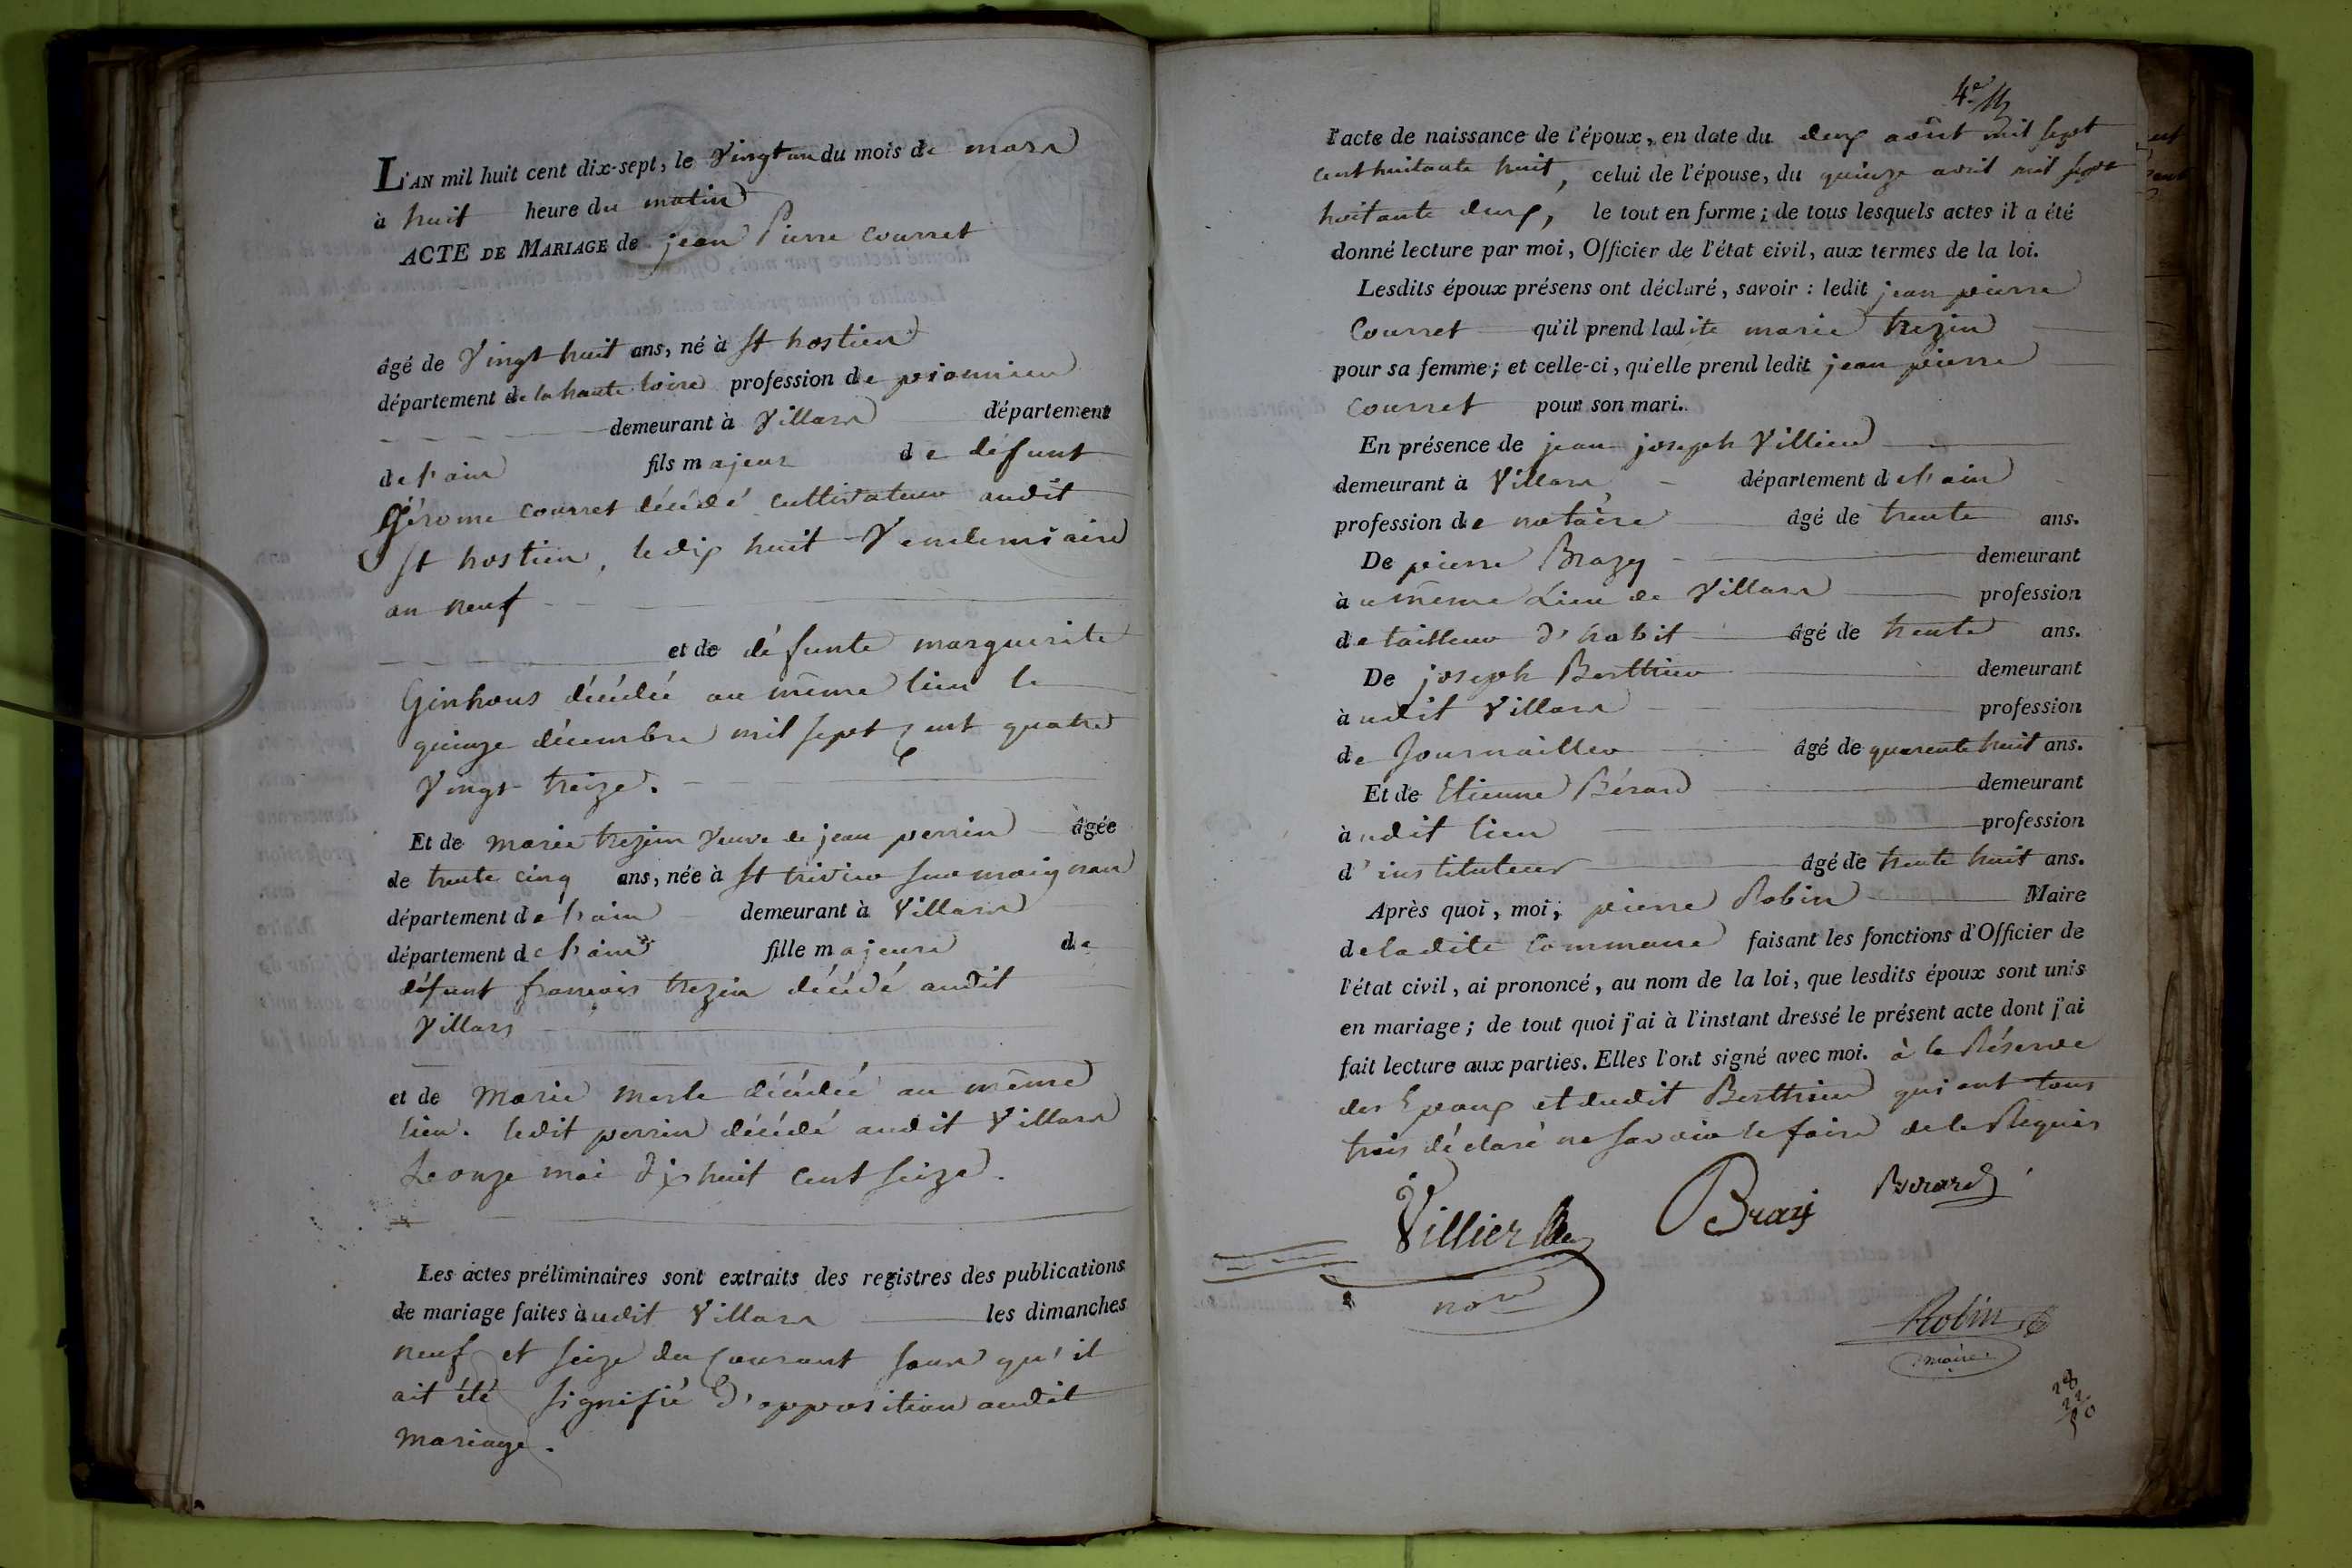 L'AN mil huit cent dix-sept, le Vingt un du mois de mars
à huit heure du matin
ACTE DE MARIAGE de jean Pierre Courret
âgé de Vingt huit ans, né à St hostien
département de la haute loire profession de pionnier
demeurant à Villars département
de l'ain fils majeur de défunt
Gérome Courret décédé cultivateur audit
St hostien, le dix huit Vendemiaire
an neuf
et de défunte marguerite
Ginhous décédée au même lieu le
quinze décembre mil sept cent quatre
Vingt treize.
Et de marie trezin veuve de jean perrin âgée
de trente cinq ans, née à St trivier sur moignan
département de l'ain demeurant à Villars
département de l'ain fille majeure de
défunt francois trezin décédé audit
Villars
et de Marie Merle décédée au même
lieu. ledit perrin décédé audit Villars
Le onze mai dix huit cent seize.
Les actes préliminaires sont extraits des registres des publications
de mariage faites à udit Villars les dimanches
neuf et seize du Courant sans qu'il
ait été signifié d'opposition audit
mariage.
4e
l'acte de naissance de l'époux, en date du deux août mil sept
cent huitante huit, celui de l'épouse, du quinze avril mil sept
huitante deux, le tout en forme ; de tous lesquels actes il a été
donné lecture par moi, Officier de l'état civil, aux termes de la loi.
Lesdits époux présens ont déclaré, savoir : ledit jean pierre
Courret qu'il prend ladite marie trezin
pour sa femme ; et celle-ci, qu'elle prend ledit jean pierre
Courret pour son mari.
En présence de jean joseph Villier
demeurant à Villars département de l'ain
profession de notaire âgé de trente ans.
De pierre Brazy demeurant
à u même Lieu de Villars profession
de tailleur d'habit âgé de trente ans.
De joseph Berthier demeurant
à udit Villars profession
de Journaillier âgé de quarente huit ans.
Et de Etienne Bérard demeurant
à udit lieu profession
d'instituteur âgé de trente huit ans.
Après quoi, moi, pierre Robin Maire
de ladite Commune faisant les fonctions d'Officier de
l'état civil, ai prononcé, au nom de la loi, que lesdits époux sont unis
en mariage ; de tout quoi j'ai à l'instant dressé le présent acte dont j'ai
fait lecture aux parties. Elles l'ont signé avec moi. à la Réserve
des Epoux et dudit Berthier qui ont tous
trois déclaré ne savoir le faire de le Requis
Villier Brazy Berard
nore
Robin
maire
28
22
50